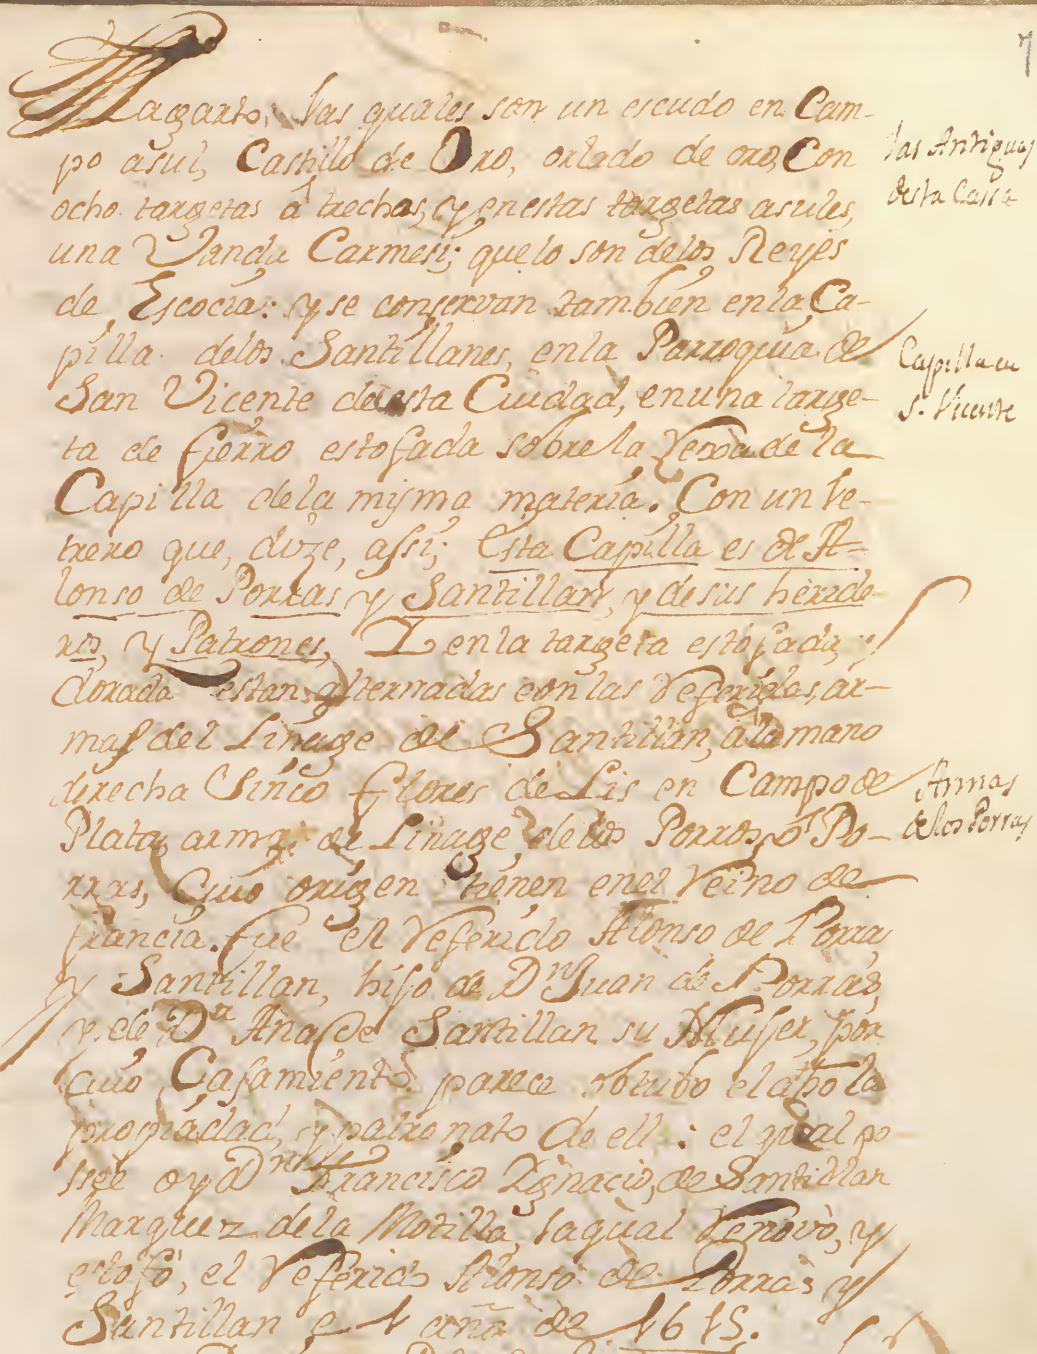 7
Lagarto, las quales son un escudo en Cam-
po asul, Castillo de Oro, orlado de oro, Con
ocho targetas á trechos, y en estas targetas asules,
una Vanda Carmesi; que lo son delos Reyes
de Escocia: y se conservan tambien en la Ca-
pilla delos Santillanes, en la Parroquia de
San Vicente de esta Cuidad, en una targe-
ta de fierro estofada sobre la Rexa de la
Capilla dela misma materia. Con un le-
trero que, dize, assi; Esta Capilla es de A-
lonso de Porras y Santillan, y de sus herede-
ros, y Patrones, Y en la targeta estofada, y
dorada estan alternadas con las Referidas, ar-
mas del Linage de Santillan, a la mano
derecha Sinco flores de Lis en Campo de
Plata, armas de Linage, de los Porros, ó Po-
rras, Cuio origen tienen en el Reino de
francia. fue el Referido Alonso de Porras
y Santillan, hijo de Dn Juan de Porras,
y de Da. Ana de Santillan su Mujer, por
cuio Casamiento parece obtubo el
propiadad, y patronato de ella: el qual po-
see oy Dn Francisco Ignacio, de Santillan
Marquez dela Motilla, la qual Renovò, y
estofó, el Referido Alonso de Porras y
Santillan el año de 1615.
las Antiguas
desta Cassa
Capilla en
S. Vicente
Armas
de los Porras